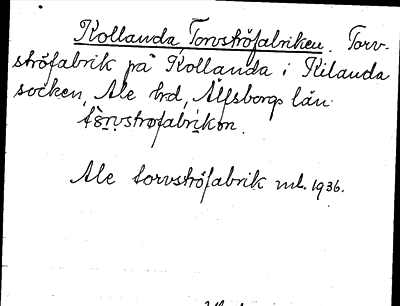 Kollanda Torvströfabriken. Torv-
ströfabrik på Kollanda i Kilanda
socken, Ale hrd, Älfsborgs län.
Ale torvströfabrik ml. 1936.